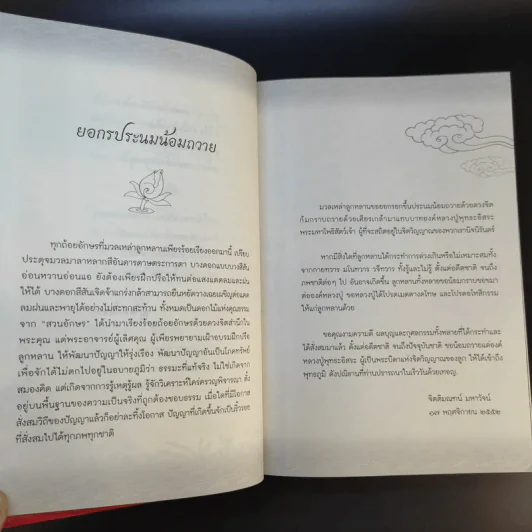 ยอกรประนมน้อมถวาย
ทุกถ้อยอักษรที่มวลเหล่าลูกหลานเพียรร้อยเรียงออกมานี้ เปรียบ
ประดุจมวลมาลาหลากสีอันดารดาษตระการตา บางดอกแบบบางสีสัน
อ่อนหวานอ่อนแอ ยังต้องเพียรฝึกปรือให้ทนต่อแสงแดดลมและฝน
ให้ได้ บางดอกสีสันเจิดจ้าแกร่งกล้าสามารถยืนหยัดวางเฉยเผชิญต่อแดด
ลมฝนและพายุได้อย่างไม่สะทกสะท้าน ทั้งหมดเป็นดอกไม้แห่งคุณธรรม
จาก "สวนอักษร" ได้นำมาเรียงร้อยถ้อยอักษรด้วยดวงจิตสำนึกใน
พระคุณ แด่พระอาจารย์ผู้เลิศคุณ ผู้เพียรพยายามเฝ้าอบรมฝึกปรือ
ลูกหลาน ให้พัฒนาปัญญาให้รุ่งเรือง พัฒนาปัญญาอันเป็นโภคทรัพย์
เพื่อจักได้ไม่ตกไปอยู่ในอบายภูมิว่า ธรรมะที่แท้จริง ไม่ใช่เกิดจาก
สมองคิด แต่เกิดจากการรู้เหตุรู้ผล รู้จักวิเคราะห์ใคร่ครวญพิจารณา ตั้ง
อยู่บนพื้นฐานของความเป็นจริงที่ถูกต้องชอบธรรม เมื่อใดที่มีโอกาส
สั่งสมวิถีของปัญญาแล้วก็อย่าละทิ้งโอกาส ปัญญาที่เกิดขึ้นจักเป็น
ที่สั่งสมไปได้ทุกภพทุกชาติ
มวลเหล่าลูกหลานขอยอกรอกขึ้นประนมน้อมถวายด้วยดวงจิต
ก้มกราบถวายด้วยเศียรเกล้ามาแทบบาทองค์หลวงปู่พุทธะอิสระ
พระมหาโพธิสัตว์เจ้า ผู้ที่จะสถิตอยู่ในจิตวิญญาณของพวกเรานิจนิรันดร์
หากมีสิ่งใดที่ลูกหลานได้กระทำการล่วงเกินหรือไม่เหมาะสมทั้ง
จากกายทวาร มโนทวาร วจีทวาร ทั้งรู้และไม่รู้ ตั้งแต่อดีตชาติ จนถึง
ภพชาติต่อๆ ไป อันอาจเกิดขึ้น ลูกหลานทั้งหลายขอน้อมกราบขอขมา
ต่อองค์หลวงปู่ ขอหลวงปู่ได้โปรดเมตตางดโทษ และโปรดอโหสิกรรม
ให้แก่ลูกหลานด้วย
ขอคุณงามความดี ผลบุญและกุศลกรรมทั้งหลายที่ได้กระทำและ
ได้สั่งสมมาแล้ว ตั้งแต่อดีตชาติ จนถึงปัจจุบันชาติ ขอน้อมถวายแด่องค์
หลวงปู่พุทธะอิสระ ผู้เป็นพระบิดาแห่งจิตวิญญาณของลูก ให้ได้เข้าถึง
พุทธภูมิ ดังปณิธานที่ท่านปรารถนาในเร็ววันด้วยเทอญ.
จิตติมณฑน์ มหาวัจน์
๑๗ พฤศจิกายน ๒๕๕๒